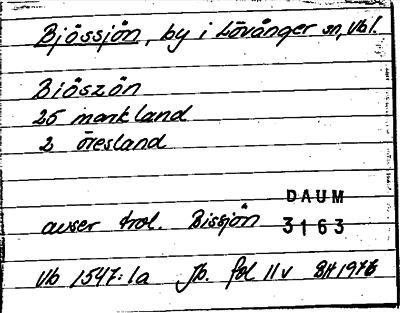 Bjössjön, by i Lövånger sn, Vbl.
Biöszön
25 markland
2 öresland
DAUM
avser trol. Bissjön 3163
Vb 1547:1a Jb. fol 11v BH 1976